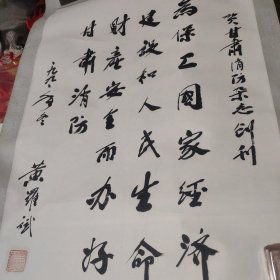 贺甘肃消防杂志创刊
为保卫国家经济
建设和人民生命
财产安全而办好
甘肃消防
黄罗斌